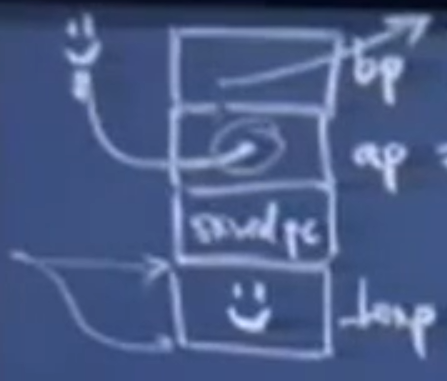 bp
ap =
saved pc
tmp